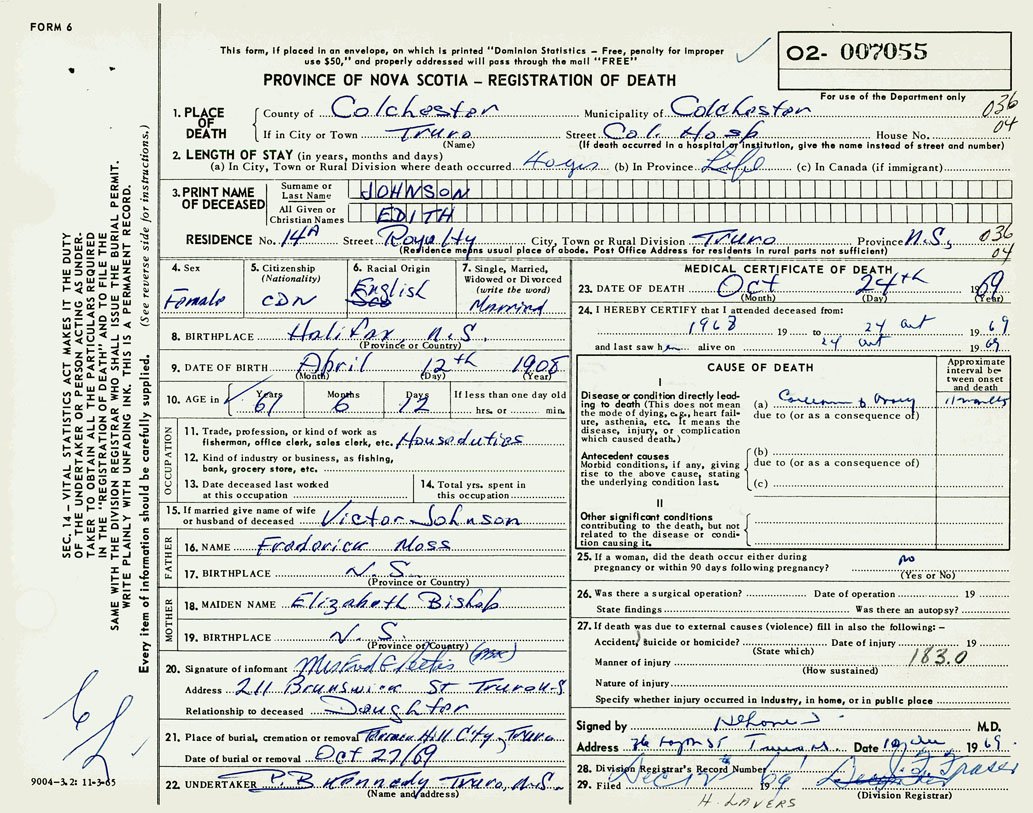 FORM 6
This form, if placed in an envelope, on which is printed "Dominion Statistics – Free, penalty for improper
use $50," and properly addressed will pass through the mail "FREE"
O2- 007055
PROVINCE OF NOVA SCOTIA – REGISTRATION OF DEATH
For use of the Department only
1. PLACE OF DEATH County of Colchester Municipality of Colchester 036
If in City or Town Truro Street Col. Hosp House No. 04
(Name) (If death occurred in a hospital or institution, give the name instead of street and number)
2. LENGTH OF STAY (in years, months and days)
(a) In City, Town or Rural Division where death occurred (b) In Province Life (c) In Canada (if immigrant)
3. PRINT NAME OF DECEASED Surname or Last Name JOHNSON
All Given or Christian Names EDITH
RESIDENCE No. 14A Street Royalty City, Town or Rural Division Truro Province N.S. 036
(Residence means usual place of abode. Post Office Address for residents in rural parts not sufficient) 04
4. Sex Female
5. Citizenship (Nationality) CDN
6. Racial Origin English
7. Single, Married, Widowed or Divorced (write the word) Married
8. BIRTHPLACE Halifax, N.S.
(Province or Country)
9. DATE OF BIRTH April 12th 1908
(Month) (Day) (Year)
10. AGE in Years Months Days If less than one day old
61 6 12 hrs. or min.
OCCUPATION
11. Trade, profession, or kind of work as
fisherman, office clerk, sales clerk, etc. Houseduties
12. Kind of industry or business, as fishing,
bank, grocery store, etc.
13. Date deceased last worked
at this occupation
14. Total yrs. spent in
this occupation
15. If married give name of wife
or husband of deceased Victor Johnson
FATHER
16. NAME Frederick Moss
17. BIRTHPLACE N.S.
(Province or Country)
MOTHER
18. MAIDEN NAME Elizabeth Bishop
19. BIRTHPLACE N.S.
(Province or Country)
20. Signature of informant
Address 211 Brunswick St Truro N.S
Relationship to deceased Doughter
21. Place of burial, cremation or removal Hill City, Truro
Date of burial or removal Oct 27/69
22. UNDERTAKER P.B Kennedy Truro, N.S.
(Name and address)
MEDICAL CERTIFICATE OF DEATH
23. DATE OF DEATH Oct 24th 1969
(Month) (Day) (Year)
24. I HEREBY CERTIFY that I attended deceased from:
1968 19 to 24 Oct 1969
and last saw her alive on 24 Oct 1969
CAUSE OF DEATH
Approximate interval between onset and death
I
Disease or condition directly leading
to death (This does not mean
the mode of dying, e.g., heart failure,
asthenia, etc. It means the
disease, injury, or complication
which caused death.)
(a) Carcinoma Ovary 11 months
due to (or as a consequence of)
Antecedent causes
Morbid conditions, if any, giving
rise to the above cause, stating
the underlying condition last.
(b)
due to (or as a consequence of)
(c)
II
Other significant conditions
contributing to the death, but not
related to the disease or condition
causing it.
25. If a woman, did the death occur either during
pregnancy or within 90 days following pregnancy? no
(Yes or No)
26. Was there a surgical operation? Date of operation 19
State findings Was there an autopsy?
27. If death was due to external causes (violence) fill in also the following: –
Accident, suicide or homicide? Date of injury 19
(State which)
Manner of injury 183.0
(How sustained)
Nature of injury
Specify whether injury occurred in Industry, in home, or in public place
Signed by M.D.
Address Date 1969
28. Division Registrar's Record Number
29. Filed Dec 12 1969 J. F. Fraser
(Division Registrar)
H. LAVERS
SEC. 14 – VITAL STATISTICS ACT MAKES IT THE DUTY
OF THE UNDERTAKER OR PERSON ACTING AS UNDER-
TAKER TO OBTAIN ALL THE PARTICULARS REQUIRED
IN THE "REGISTRATION OF DEATH" AND TO FILE THE
SAME WITH THE DIVISION REGISTRAR WHO SHALL ISSUE THE BURIAL PERMIT.
WRITE PLAINLY WITH UNFADING INK. THIS IS A PERMANENT RECORD.
Every item of information should be carefully supplied. (See reverse side for instructions.)
9004-3.2: 11-3-65